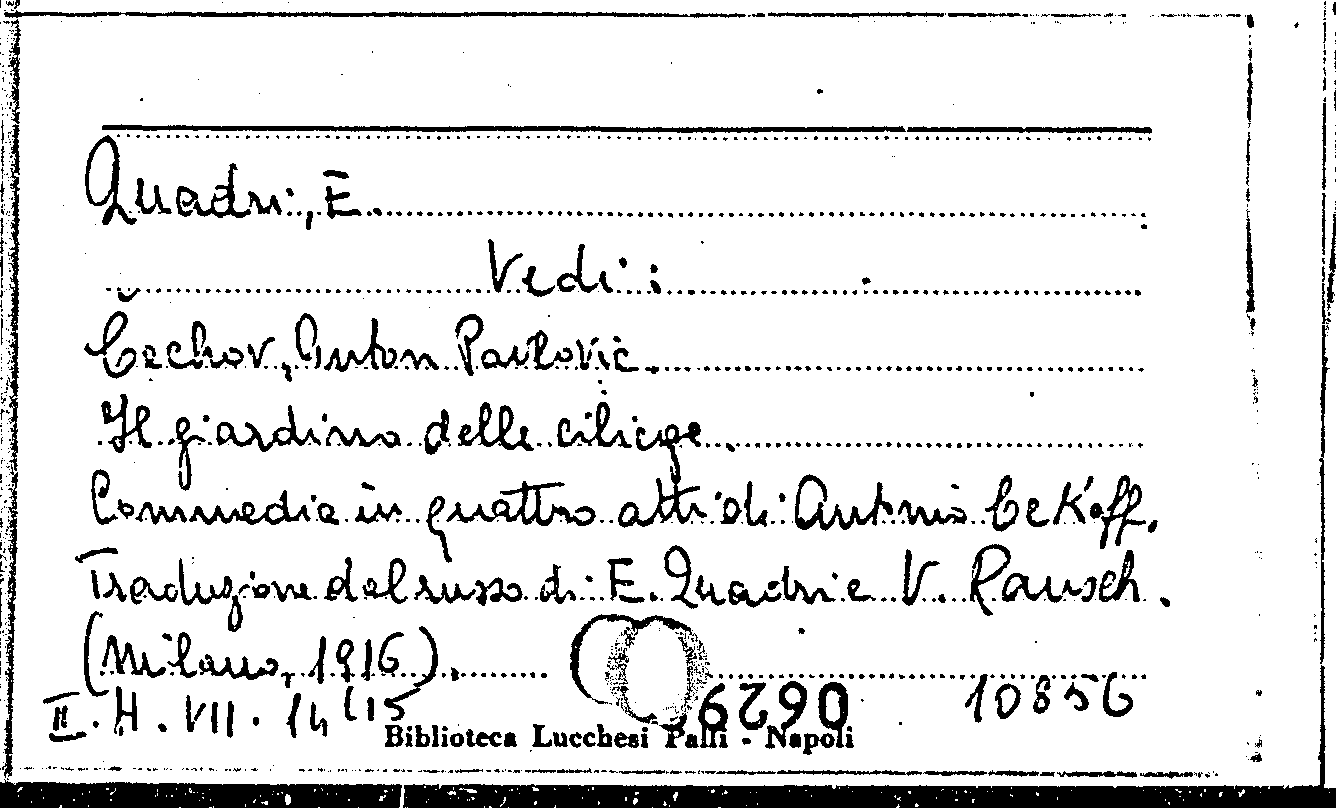 Quadri, E.
Vedi:
Čechov, Anton Pavlovic.
Il giardino delle ciliege.
Commedia in quattro atti di Antonio Cekoff.
Traduzione dal russo di E. Quadri e V. Rausch.
(Milano, 1916).
II. H. VII. 14 (15
10856
Biblioteca Lucchesi Palli - Napoli